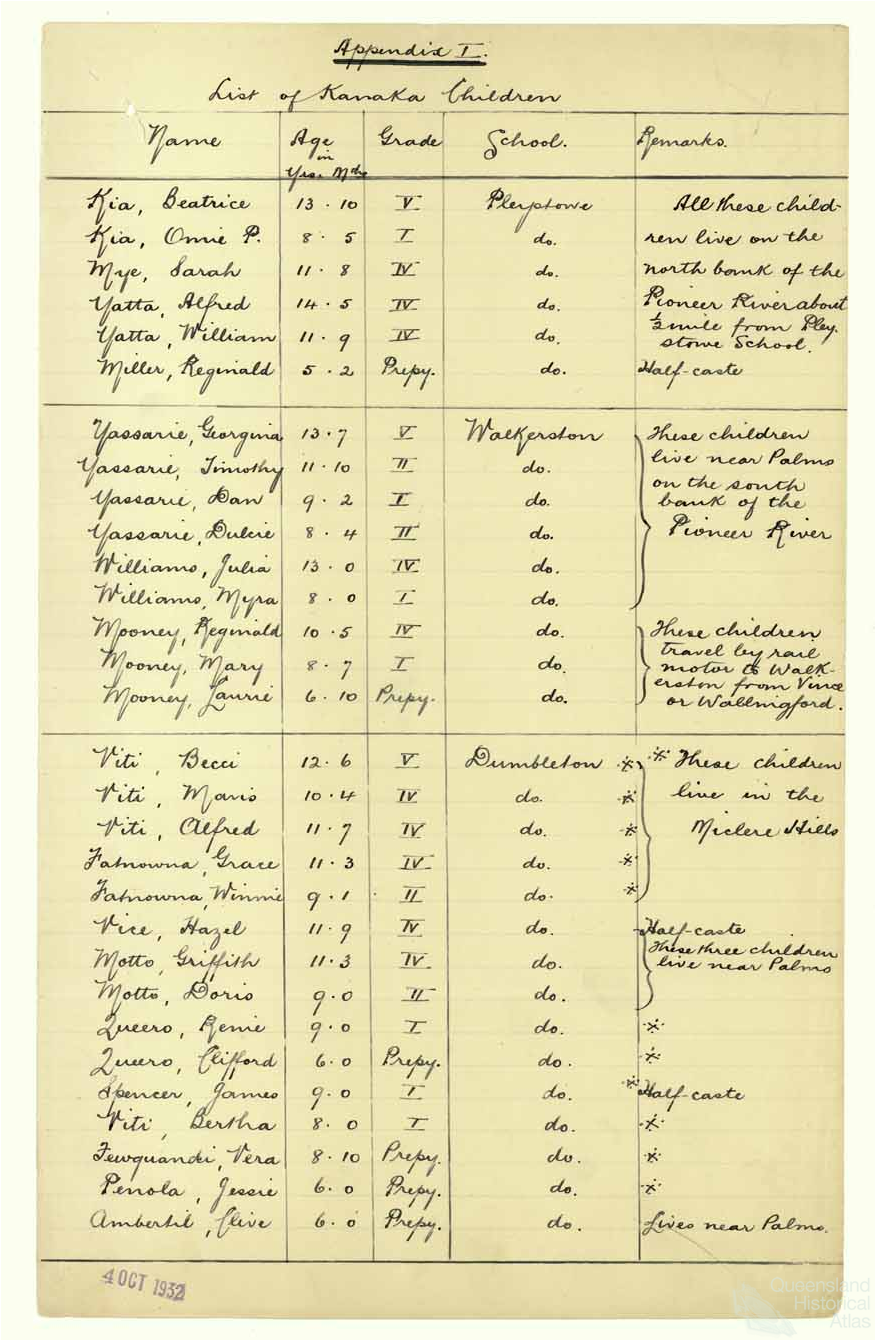 Appendix I.
List of Kanaka Children
Name Age in Yrs. Mths Grade School. Remarks.
Kia, Beatrice 13 . 10 V Pleystowe All these child-
Kia, Omie P. 8 . 5 I do. ren live on the
Mye, Sarah 11 . 8 IV do. north bank of the
Yatta, Alfred 14 . 5 IV do. Pioneer River about
Yatta, William 11 . 9 IV do. ½ mile from Pley
stowe School.
Miller, Reginald 5 . 2 Prepy. do. Half-caste
Yassarie, Georgina 13 . 7 V Walkerston These children
Yassarie, Timothy 11 . 10 II do. live near Palms
on the south
Yassarie, Dan 9 . 2 I do. bank of the
Yassarie, Dulcie 8 . 4 II do. Pioneer River
Williams, Julia 13 . 0 IV do.
Williams, Myra 8 . 0 I do.
Mooney, Reginald 10 . 5 IV do. These children
travel by rail
Mooney, Mary 8 . 7 I do. motor to Walk-
erston from Vince
Mooney, Laurie 6 . 10 Prepy. do. or Wallingford.
Viti, Becci 12 . 6 V Dumbleton * * These children
Viti, Mavis 10 . 4 IV do. * live in the
Viti, Alfred 11 . 7 IV do. * Miclere Hills
Fatnowna, Grace 11 . 3 IV do. *
Fatnowna, Winnie 9 . 1 II do. *
Vice, Hazel 11 . 9 IV do. Half-caste
These three children
Motto, Griffith 11 . 3 IV. do. live near Palms
Motto, Doris 9 . 0 II do.
Queero, Renie 9 . 0 I do. *
Queero, Clifford 6 . 0 Prepy. do. *
Spencer, James 9 . 0 I do. * Half-caste
Viti, Bertha 8 . 0 I do. *
Fewquandi, Vera 8 . 10 Prepy. do. *
Penola, Jessie 6 . 0 Prepy. do. *
Ambertil, Clive 6 . 0 Prepy. do. Lives near Palms.
4 OCT 1932
Queensland
Historical
Atlas